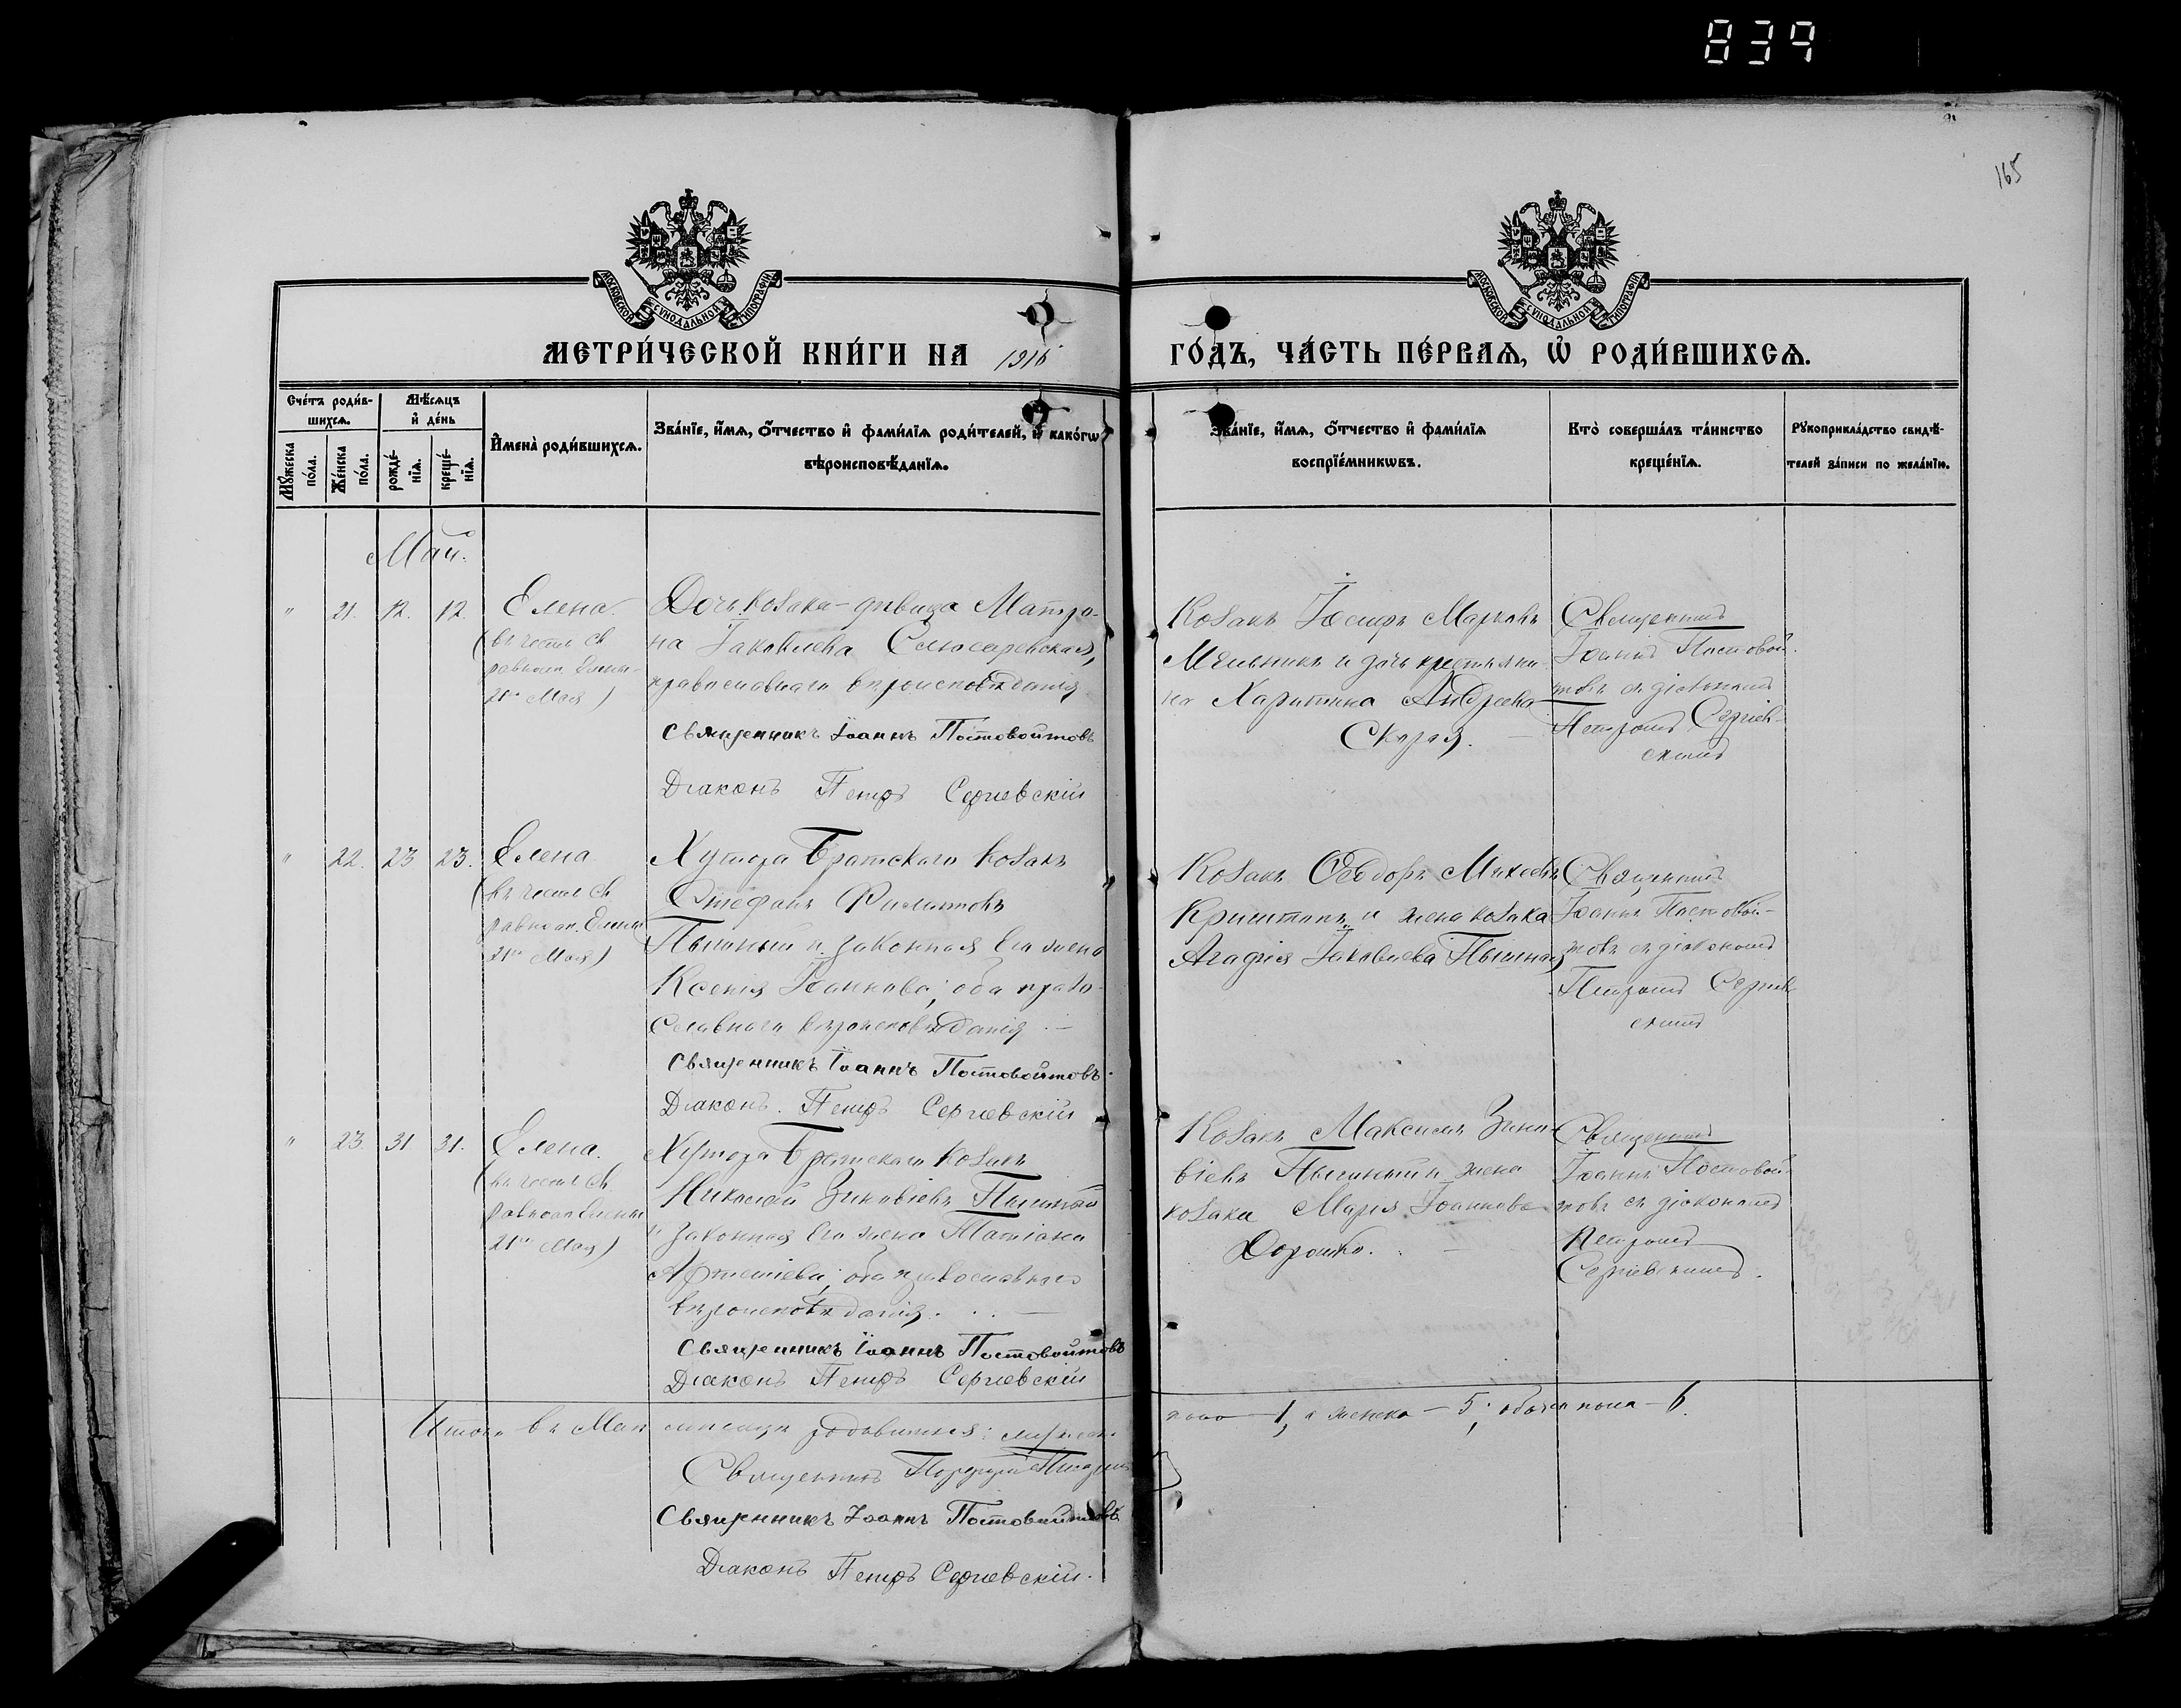 839
165
МОСКОВСКОЙ СѴНОДАЛЬНОЙ ТИПОГРАФІИ
МОСКОВСКОЙ СѴНОДАЛЬНОЙ ТИПОГРАФІИ
МЕТРИ́ЧЕСКОЙ КНИ́ГИ НА 1916 ГО́ДЪ, ЧА́СТЬ ПЕ́РВАѦ, Ѡ҆ РОДИ́ВШИХСѦ.
Сче́тъ роди́в-
шихсѧ.
Мꙋ́жеска
по́ла.
Же́нска
по́ла.
Мѣ́сѧцъ
и҆ де́нь
рожде́-
нїѧ.
креще́-
нїѧ.
И҆мена̀ роди́вшихсѧ.
Зва́нїе, и҆́мѧ, ѻ҆́тчество и҆ фами́лїѧ роди́телей, и҆ како́гѡ
вѣроисповѣ́данїѧ.
Зва́нїе, и҆́мѧ, ѻ҆́тчество и҆ фами́лїѧ
воспрїе́мникѡвъ.
Кто̀ соверша́лъ та́инство
креще́нїѧ.
Рꙋкоприкла́дство свидѣ́-
телей за́писи по жела́нїю.
Май.
" 21. 12. 12. Елена
(въ честь св
равноап. Елены
21го Мая)
Дочь козака-дѣвица Матро-
на Іаковлева Слюсаревская,
православнаго вѣроисповѣданія
Священникъ Іоаннъ Постовойтовъ
Діаконъ Петръ Сергіевскій
Козакъ Марковъ
Мельникъ и дочь крестьяни-
на Харитина Андреева
Скорая.
Священникъ
Іоаннъ Постовой-
товъ съ діакономъ
Петромъ Сергіев-
скимъ
" 22. 23 23. Елена
(въ честь св
равноап. Елены
21го Мая)
Хутора Братскаго козакъ
Стефанъ Филиповъ
Пышный и законная его жена
Ксенія Іоаннова; оба право-
славнаго вѣроисповѣданія
Священникъ Іоаннъ Постовойтовъ
Діаконъ Петръ Сергіевскій
Козакъ Ѳеодоръ
и жена козака
Агафія Іаковлева Пышная
Священникъ
Іоаннъ Постовой-
товъ съ діакономъ
Петромъ Сергіев-
скимъ
" 23. 31 31. Елена.
(въ честь св
равноап Елены
21го Мая)
Хутора Братскаго козакъ
Николай Зиновіевъ Пышный
и законная его жена Татіана
оба православнаго
вѣроисповѣданія.
Священникъ Іоаннъ Постовойтовъ
Діаконъ Петръ Сергіевскій
Козакъ Максимъ Зино-
віевъ Пышный и жена
козака Марія Іоаннова
Дорошко.
Священникъ
Іоаннъ Постовой-
товъ съ діакономъ
Петромъ
Сергіевскимъ.
Итого въ Маѣ мѣсяцѣ родившихся: мужеск.
пола — 1, а женска — 5; обоего пола — 6.
Священникъ
Священникъ Іоаннъ Постовойтовъ
Діаконъ Петръ Сергіевскій.